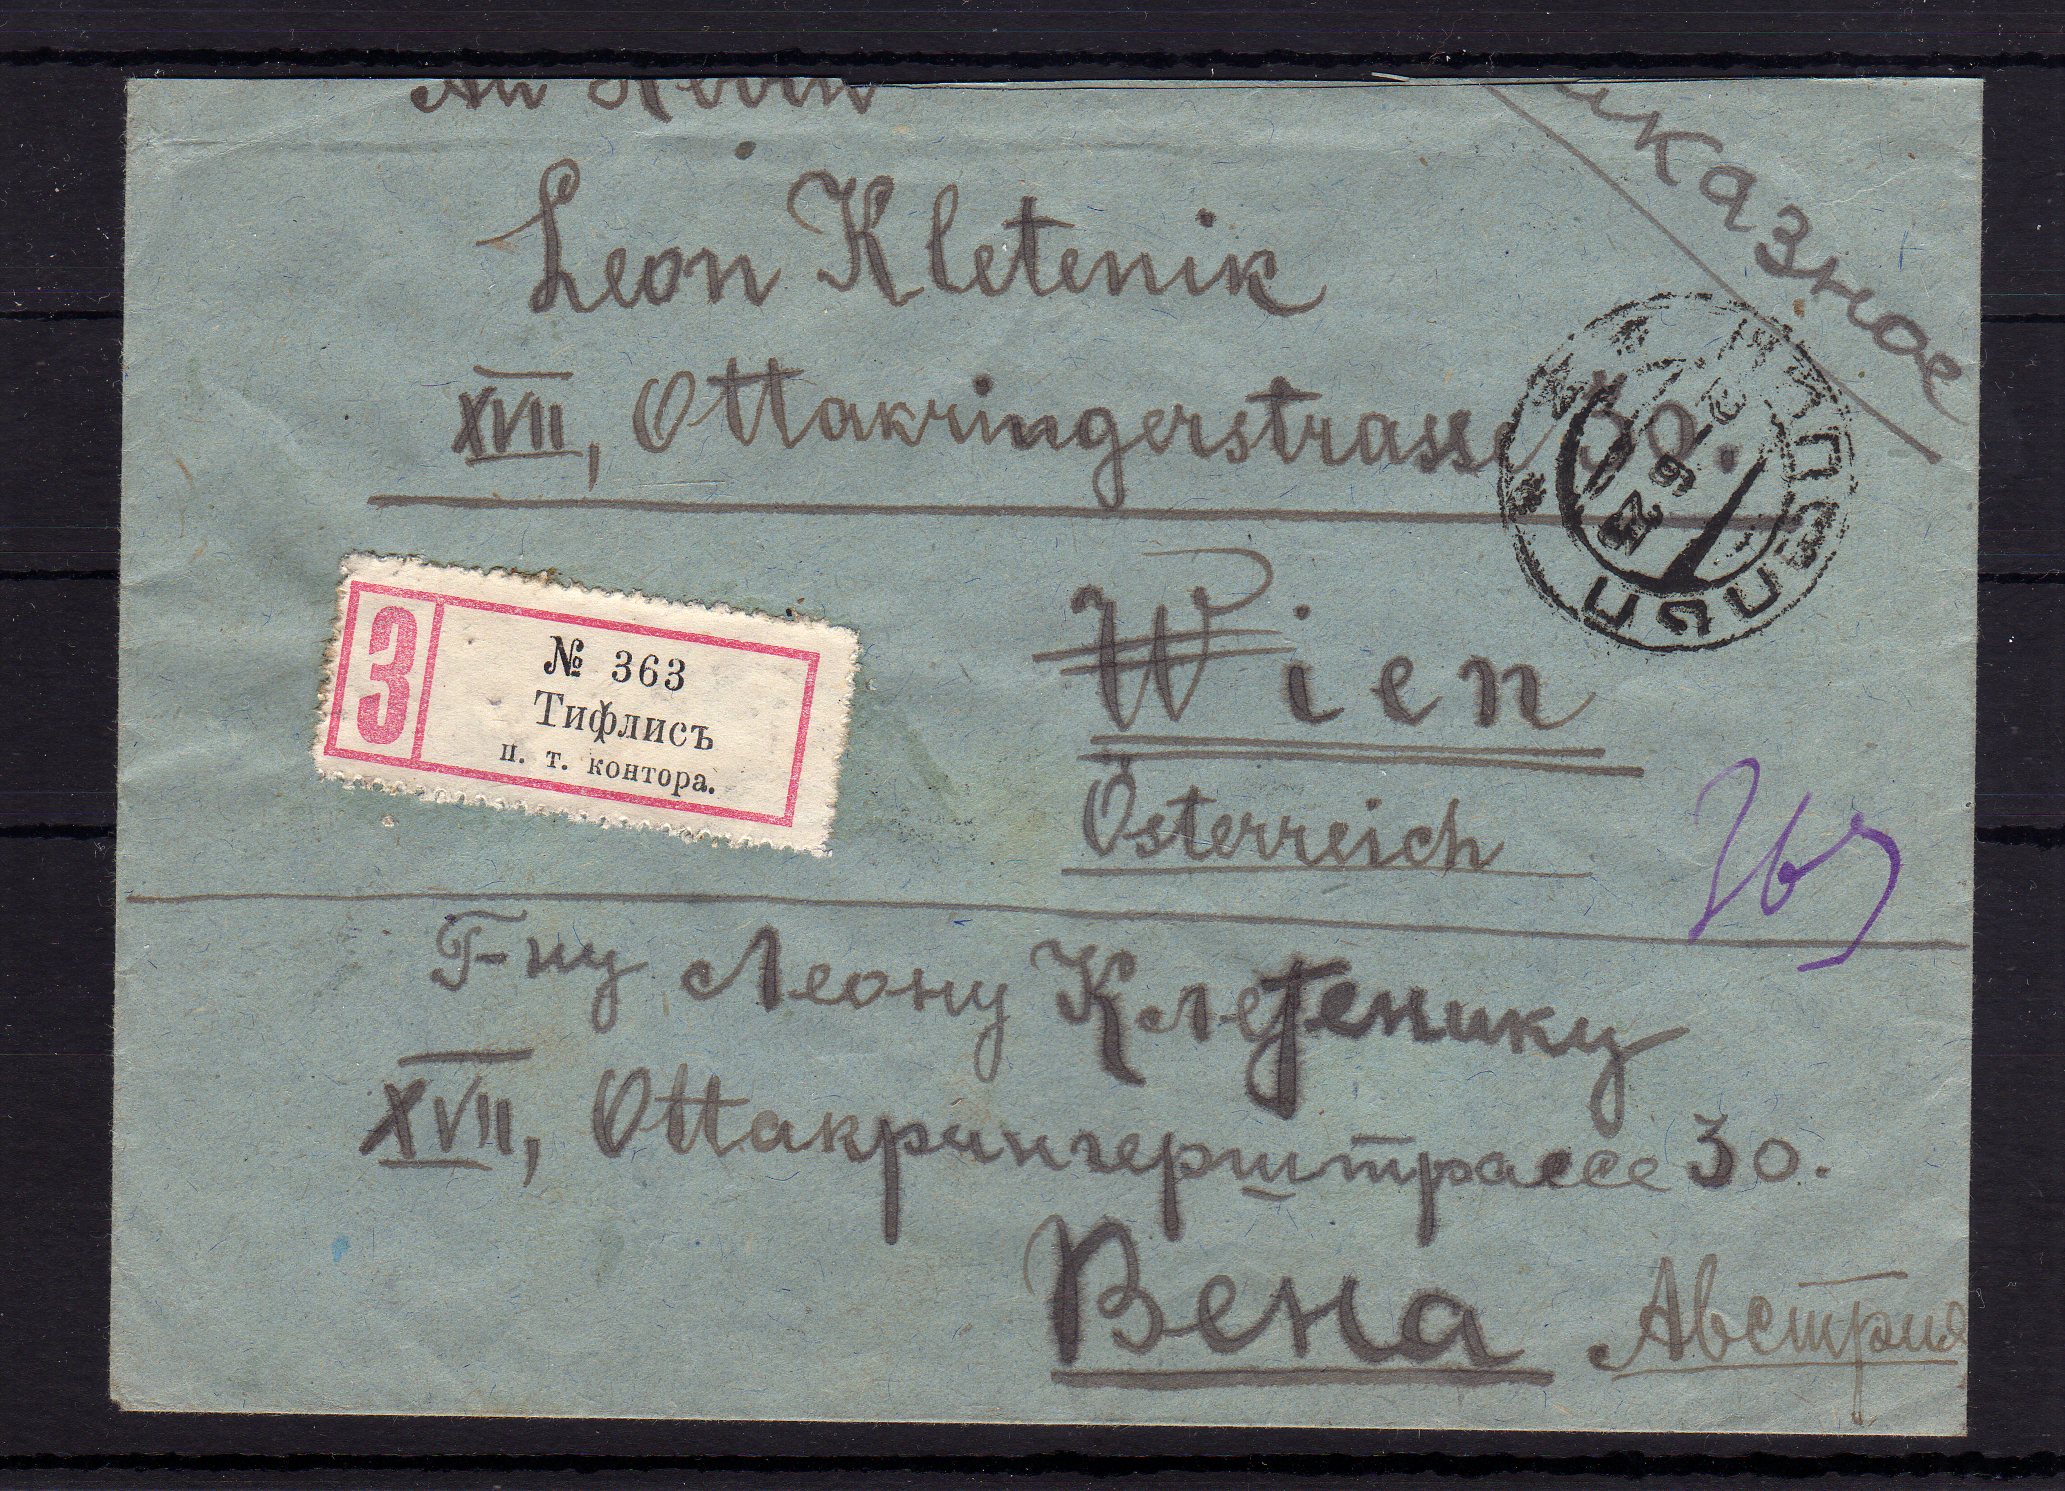 An Herrn
Leon Kletenik
XVII, Ottakringerstrasse 30.
Wien
Österreich
казное
З
№ 363
Тифлисъ
п. т. контора.
Г-ну Леону Клетенику
XVII, Оттакрингерштрассе 30.
Вена Австрия